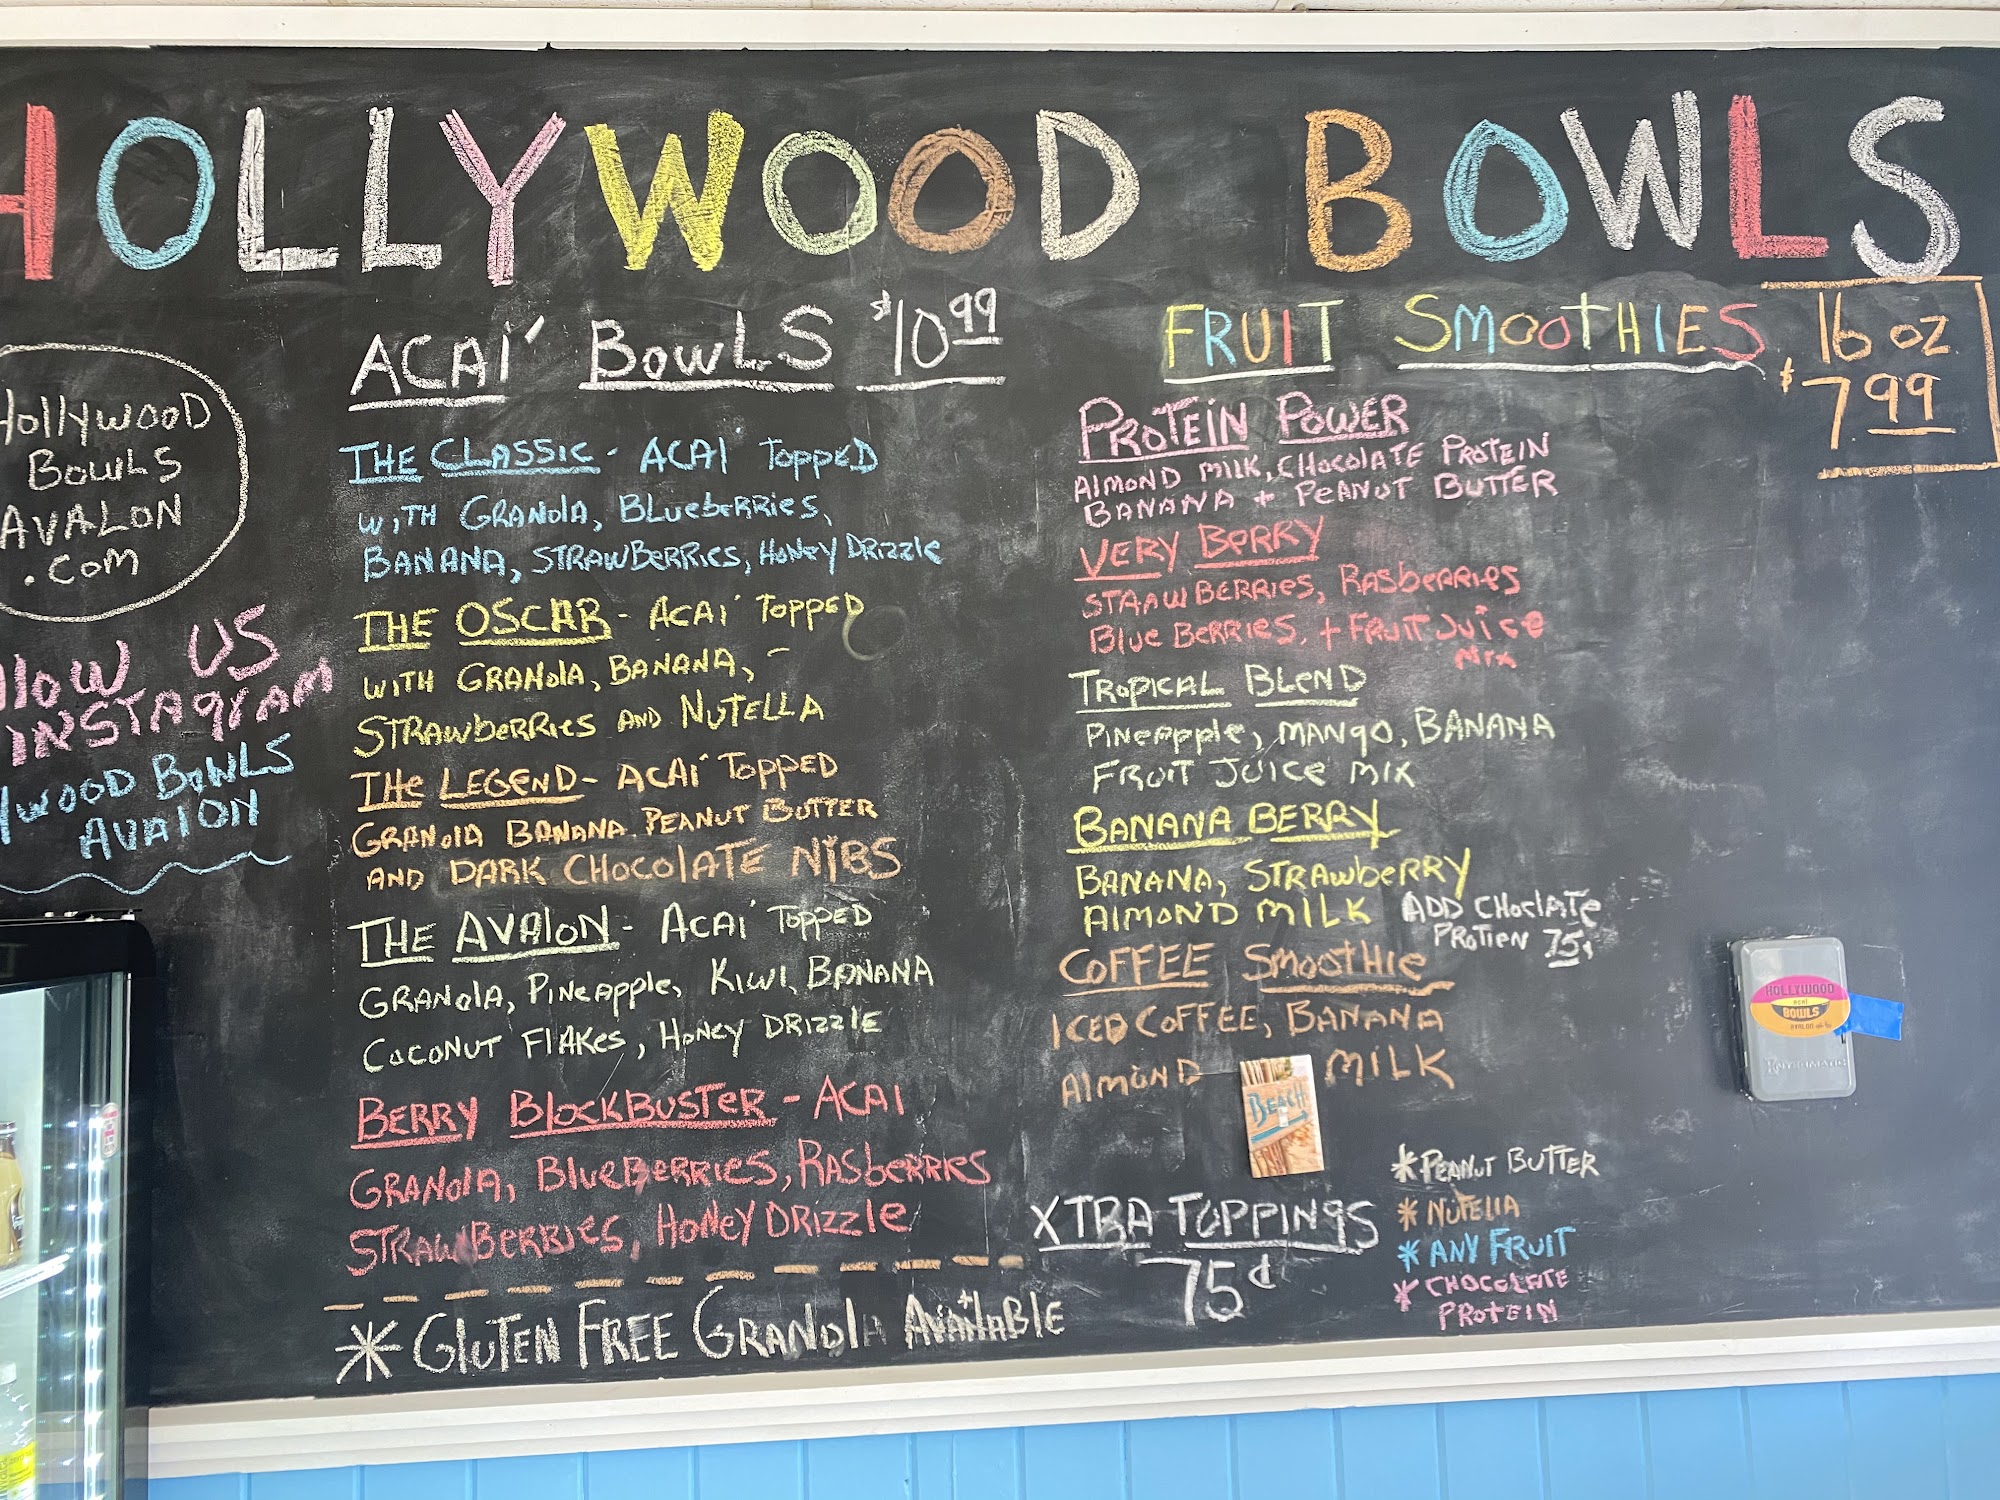 HOLLYWOOD BOWLS
HOLLYWOOD
BOWLS
AVALON
.COM
US
INSTAGRAM
BOWLS
AVALON
ACAI' BOWLS $10.99
THE CLASSIC - ACAI TOPPED
WITH GRANOLA, BLUEBERRIES,
BANANA, STRAWBERRIES, HONEY DRIZZLE
THE OSCAR - ACAI' TOPPED
WITH GRANOLA, BANANA, -
STRAWBERRIES AND NUTELLA
THE LEGEND - ACAI' TOPPED
GRANOLA BANANA PEANUT BUTTER
AND DARK CHOCOLATE NIBS
THE AVALON - ACAI' TOPPED
GRANOLA, PINEAPPLE, KIWI, BANANA
COCONUT FLAKES, HONEY DRIZZLE
BERRY BLOCKBUSTER - ACAI
GRANOLA, BLUEBERRIES, RASBERRIES
STRAWBERRIES, HONEY DRIZZLE
* GLUTEN FREE GRANOLA AVAILABLE
FRUIT SMOOTHIES
16 OZ.
$7.99
PROTEIN POWER
ALMOND MILK, CHOCOLATE PROTEIN
BANANA + PEANUT BUTTER
VERY BERRY
STRAWBERRIES, RASBERRIES
BLUE BERRIES, + FRUIT JUICE
MIX
TROPICAL BLEND
PINEAPPLE, MANGO, BANANA
FRUIT JUICE MIX
BANANA BERRY
BANANA, STRAWBERRY
ALMOND MILK ADD CHOCLATE
PROTIEN 75¢
COFFEE SMOOTHIE
ICED COFFEE, BANANA
ALMOND MILK
BEACH
XTRA TOPPINGS
75¢
* PEANUT BUTTER
* NUTELLA
* ANY FRUIT
* CHOCOLATE
PROTEIN
HOLLYWOOD
ACAI
BOWLS
AVALON